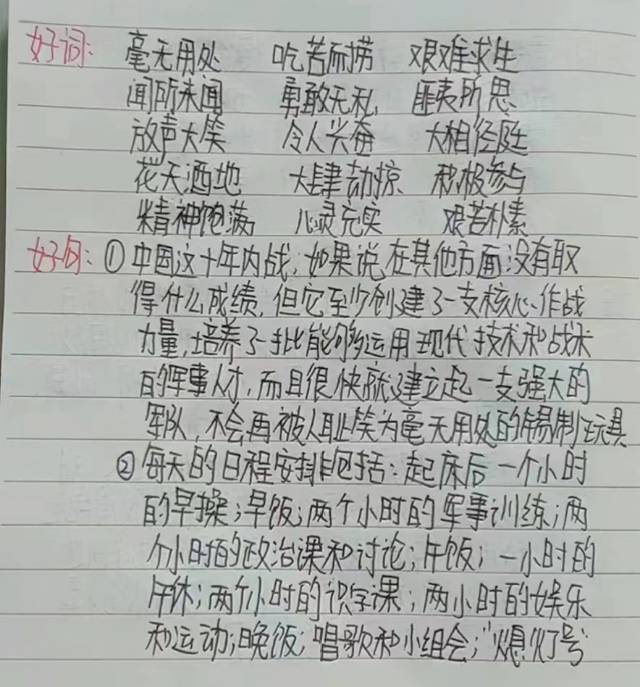 好词: 毫无用处 吃苦耐捞 艰难求生
闻所未闻 勇敢无私 匪夷所思
放声大笑 令人兴奋 大相径庭
花天酒地 大肆劫掠 积极参与
精神饱满 心灵充实 艰苦朴素
好句: ①中国这十年内战,如果说在其他方面没有取
得什么成绩,但它至少创建了一支核心作战
力量,培养了一批能够运用现代技术和战术
的军事人才,而且很快就建立起一支强大的
军队,不会再被人耻笑为毫无用处的锡制玩具
②每天的日程安排包括:起床后一个小时
的早操;早饭;两个小时的军事训练;两
个小时的政治课和讨论;午饭;一小时的
午休;两个小时的识字课;两小时的娱乐
和运动;晚饭;唱歌和小组会;“熄灯号”